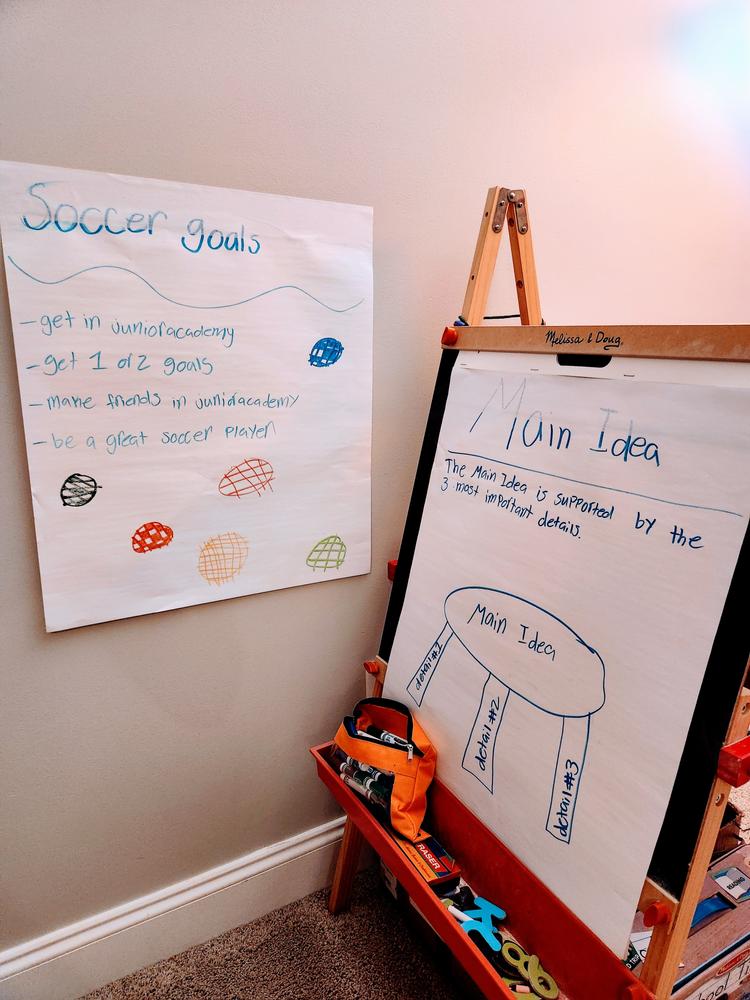 Soccer goals
- get in junior academy
- get 1 or 2 goals
- make friends in junior academy
- be a great soccer player
Melissa & Doug
Main Idea
The Main Idea is supported by the
3 most important details.
Main Idea
detail #1
detail #2
detail #3
ERASER
READING